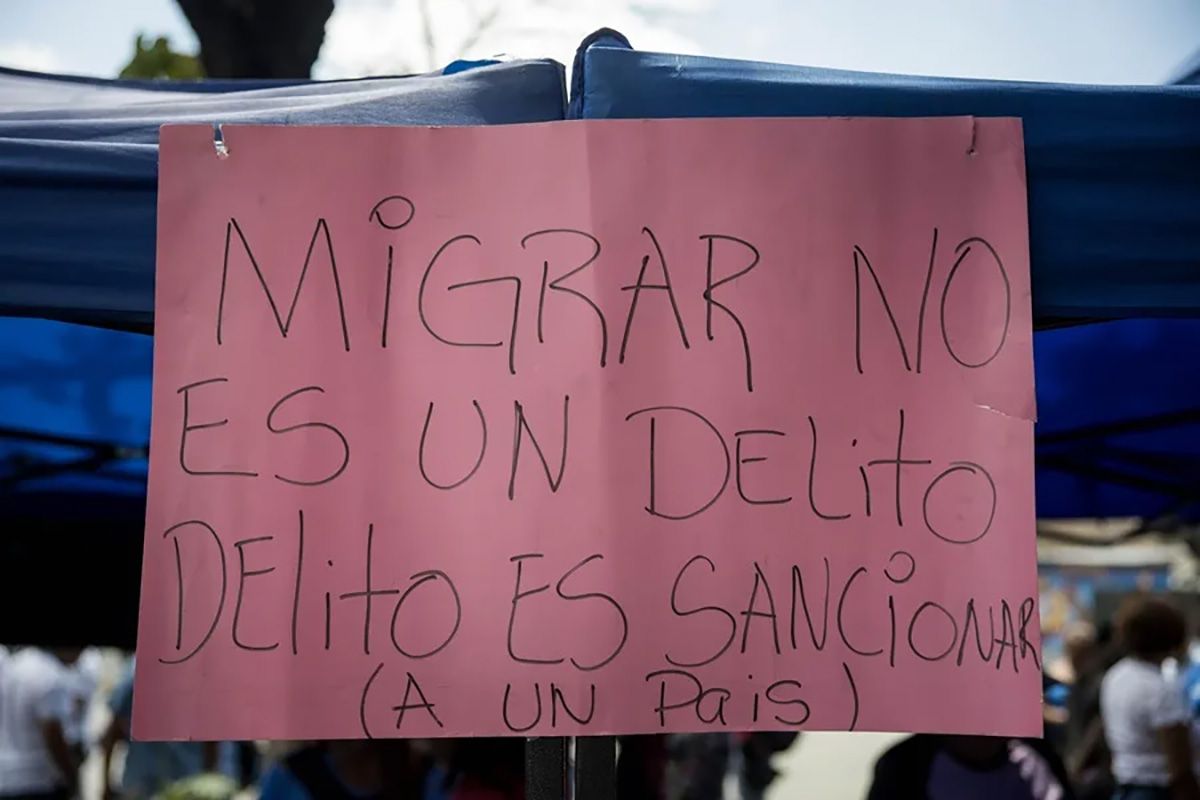 MiGRAR NO
ES UN DELito
DElitO ES SANCiONAR
(A UN Pais)